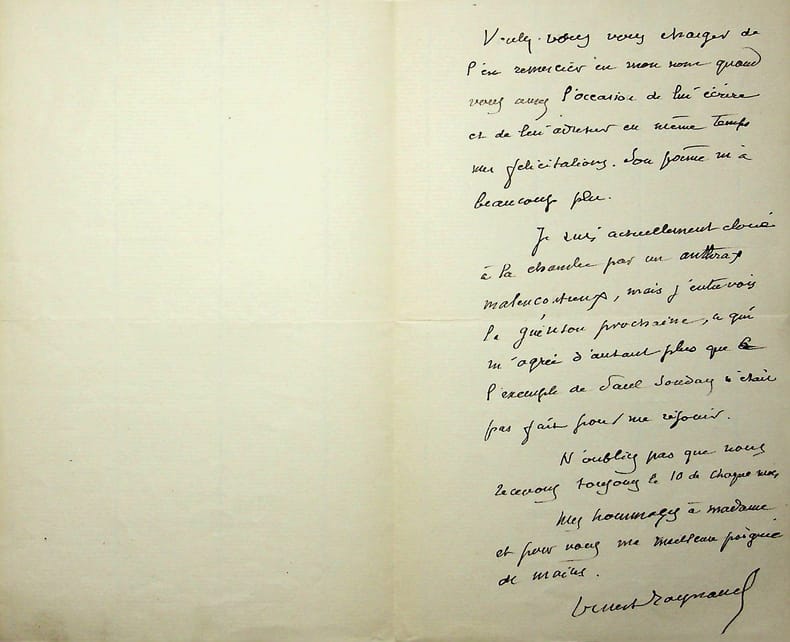 Voulez-vous vous charger de
l'en remercier en mon nom quand
vous aurez l'occasion de lui écrire
et de lui adresser en même temps
mes félicitations. Son poème m'a
beaucoup plu.
Je suis actuellement cloué
à la chambre par un anthrax
malencontreux, mais j'entrevois
la guérison prochaine, ce qui
m'agrée d'autant plus que
l'exemple de Paul Souday n'était
pas fait pour me réjouir.
N'oubliez pas que nous
recevons toujours le 10 de chaque mois
Mes hommages à madame
et pour vous ma meilleure poignée
de mains.
Ernest Raynaud